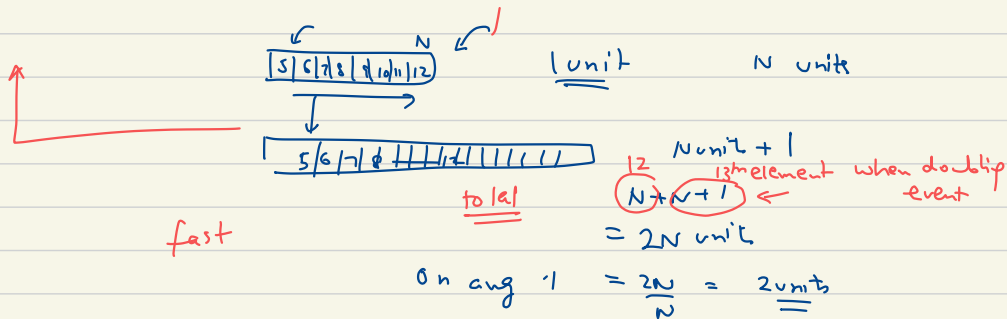 N
|5|6|7|8|9|10|11|12 1 unit N units
5/6/7/8 N unit + 1
12 13th element when doubling event
total N + N + 1
fast = 2N units
On avg = 2N/N = 2 units